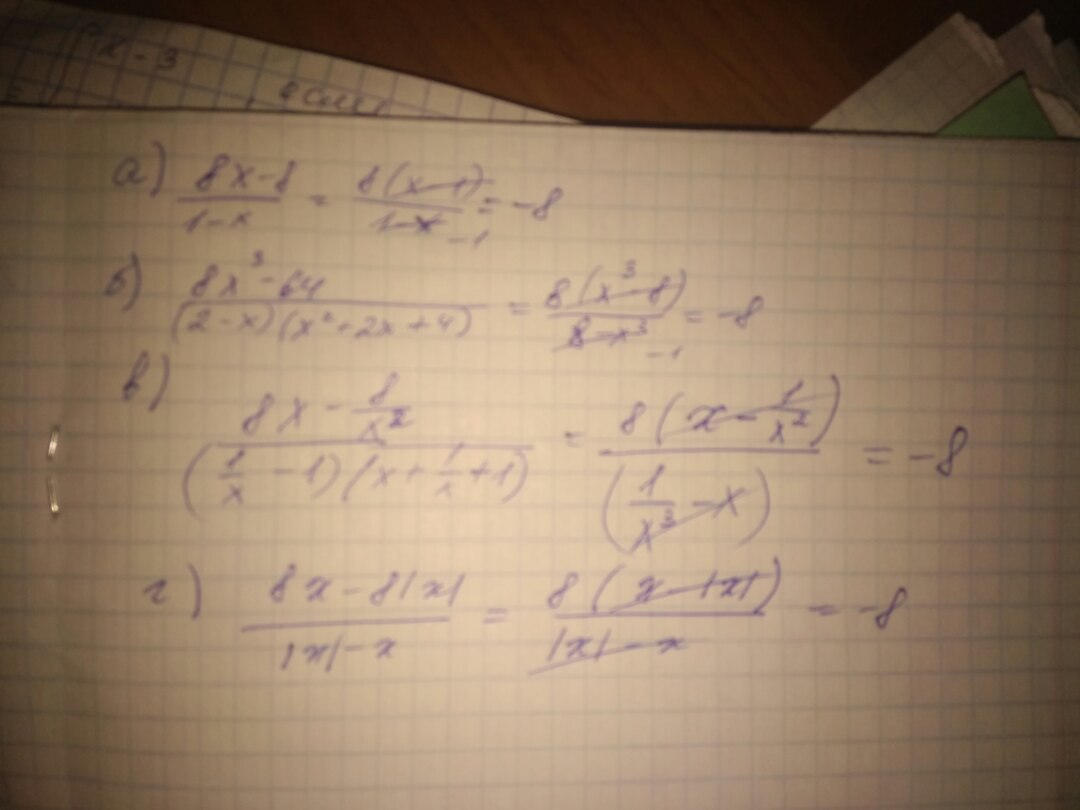 x - 3
а) (8x-8)/(1-x) = 8(x-1)/(1-x) -1 = -8
б) (8x³-64)/((2-x)(x²+2x+4)) = 8(x³-8)/(8-x³) -1 = -8
в) (8x - 8/x²)/((1/x - 1)(x + 1/x + 1)) = 8(x - 1/x²)/(1/x³ - x) = -8
г) (8x-8|x|)/(|x|-x) = 8(x-|x|)/(|x|-x) = -8